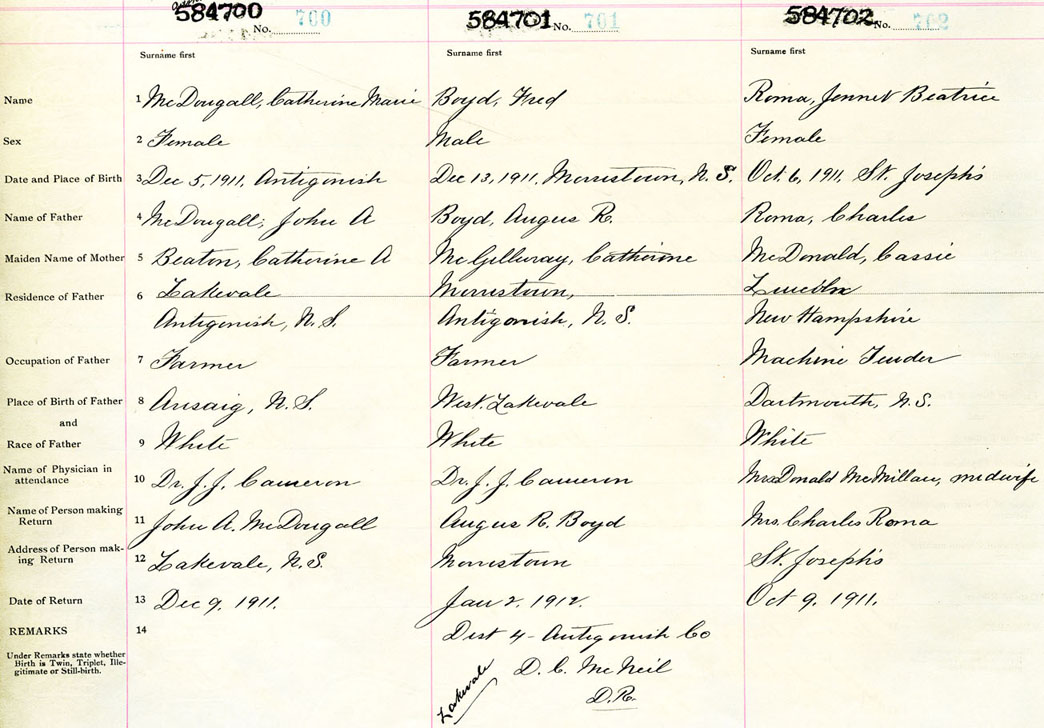 584700 No. 700 584701 No. 701 584702 No. 702
Surname first Surname first Surname first
Name 1 McDougall, Catherine Marie Boyd, Fred Roma, Jennet Beatrice
Sex 2 Female Male Female
Date and Place of Birth 3 Dec 5, 1911, Antigonish Dec 13, 1911, Morristown, N.S. Oct. 6, 1911, St. Joseph's
Name of Father 4 McDougall, John A Boyd, Angus R. Roma, Charles
Maiden Name of Mother 5 Beaton, Catherine A McGillvray, Catherine McDonald, Cassie
Residence of Father 6 Lakevale Morristown, Lincoln
Antigonish, N.S. Antigonish, N.S. New Hampshire
Occupation of Father 7 Farmer Farmer Machine Tender
Place of Birth of Father 8 Arisaig, N.S. West Lakevale Dartmouth, N.S.
and
Race of Father 9 White White White
Name of Physician in
attendance 10 Dr. J. J. Cameron Dr. J. J. Cameron Mrs Donald McMillan, midwife
Name of Person making
Return 11 John A. McDougall Angus R. Boyd Mrs. Charles Roma
Address of Person mak-
ing Return 12 Lakevale, N.S. Morristown St. Joseph's
Date of Return 13 Dec 9, 1911. Jan 2, 1912. Oct 9, 1911.
REMARKS 14 Dist 4 - Antigonish Co
Under Remarks state whether
Birth is Twin, Triplet, Ille-
gitimate or Still-birth.
D. C. McNeil
D.R.
Lakevale